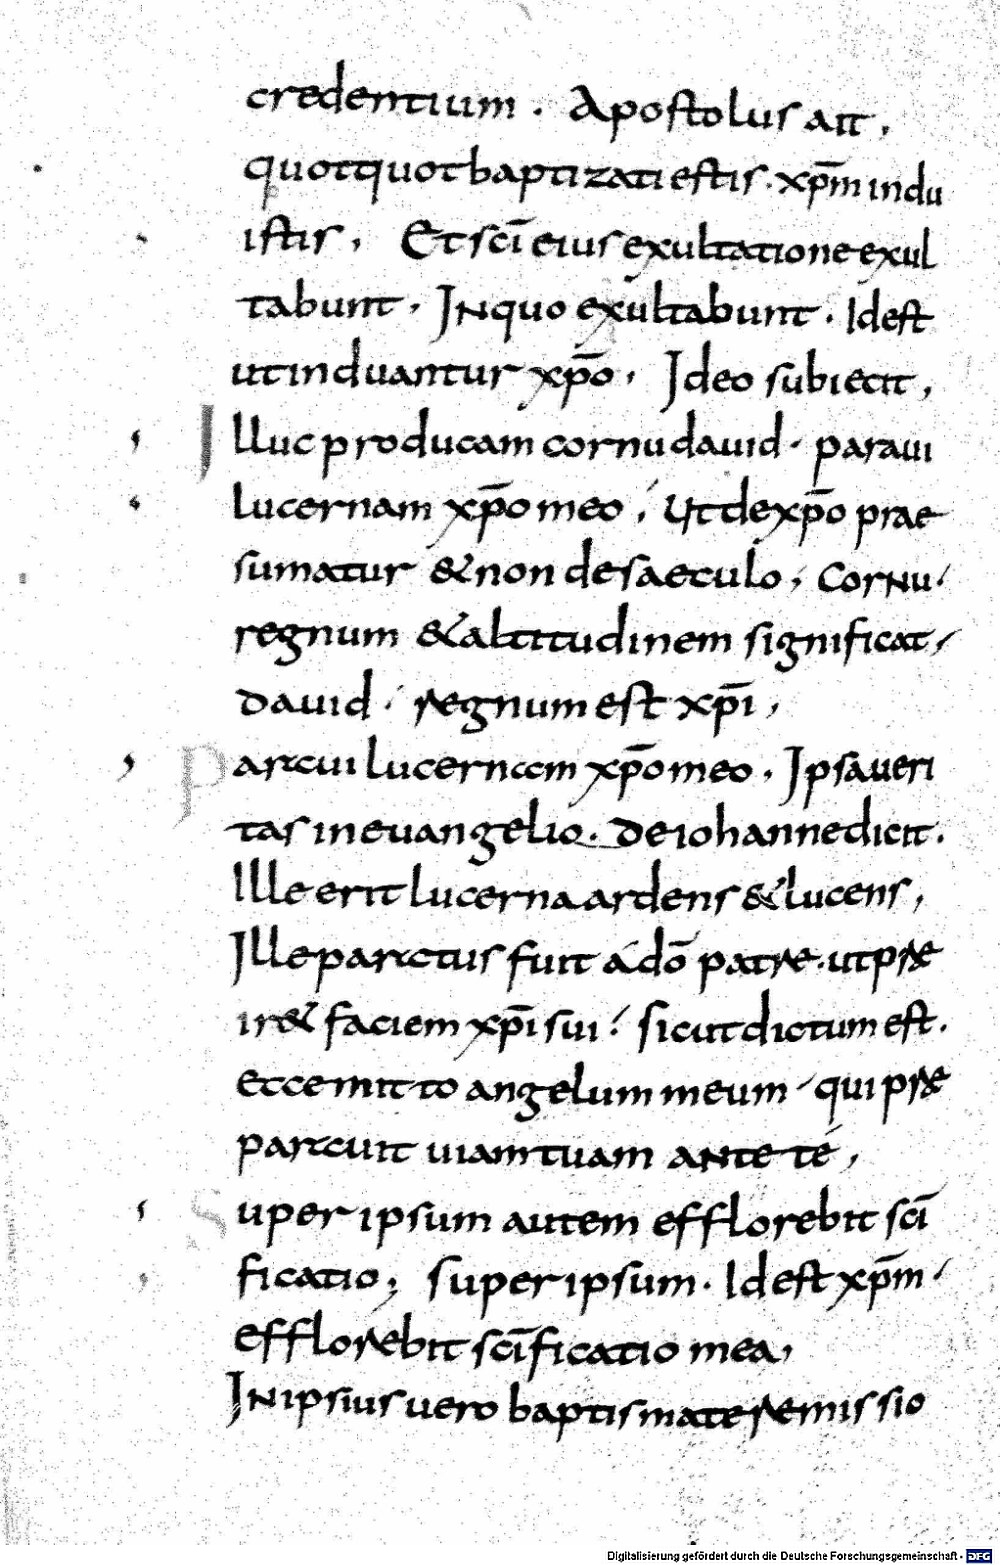 credentium . Apostolus ait ,
quotquot baptizati estis . xp̄m indu
istis , Et sc̄i eius exultatione exul
tabunt . In quo exultabunt . Id est
ut induantur xp̄o , Ideo subiecit ,
Illuc producam cornu dauid . paraui
lucernam xp̄o meo , Ut de xp̄o prae
sumatur & non de saeculo , Cornu .
regnum & altitudinem significat ,
dauid . regnum est xp̄i ,
Paraui lucernam xp̄o meo . Ipsa ueri
tas in euangelio . de iohanne dicit .
Ille erit lucerna ardens & lucens ,
Ille paratus fuit a dō patre . ut prae
ir& faciem xp̄i sui . sicut dictum est .
ecce mitto angelum meum qui prae
parauit uiam tuam ante té ,
Super ipsum autem efflorebit sc̄i
ficatio ; super ipsum . Id est xp̄m
efflorebit sc̄ificatio mea ,
In ipsius uero baptismate remissio
Digitalisierung gefördert durch die Deutsche Forschungsgemeinschaft - DFG